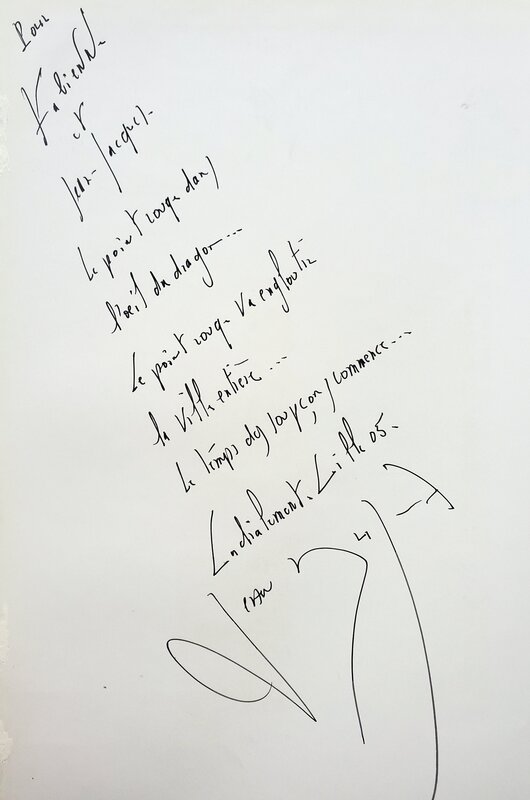 Pour
Fabienne
et
Jean-Jacques.
Le point rouge dans
l'oeil du dragon...
Le point rouge va engloutir
la ville entière...
Le temps des soupçons commence...
Cordialement. Lille 05.
Jean